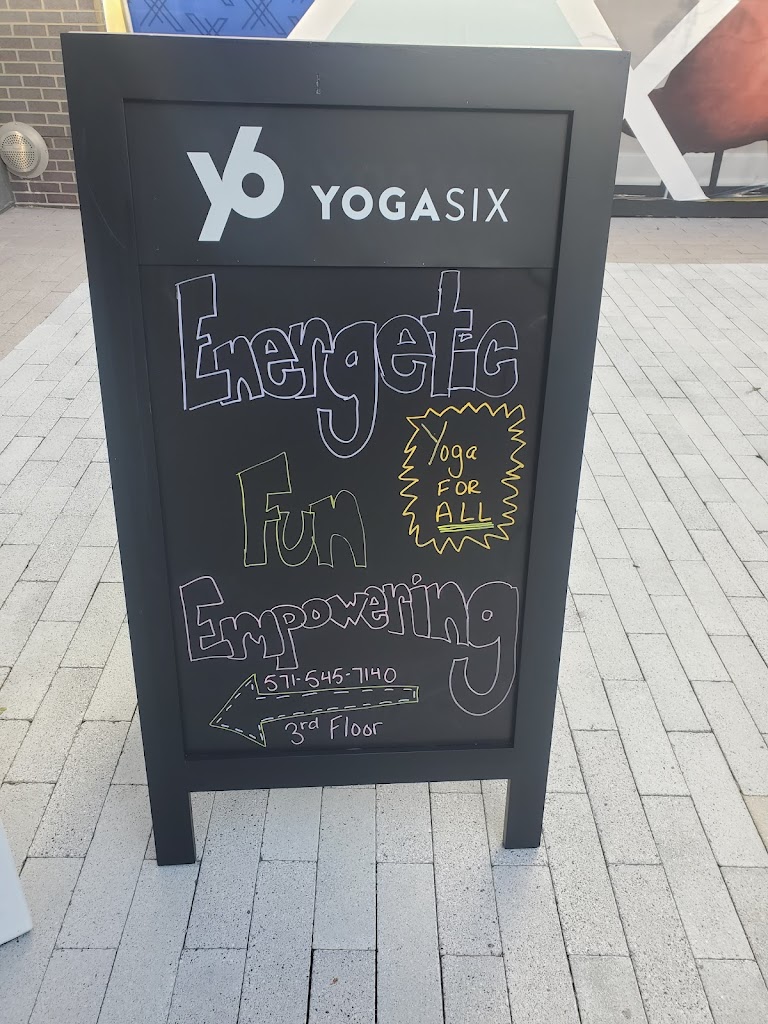 y6 YOGASIX
Energetic
Yoga
FOR
ALL
Fun
Empowering
571-545-7140
3rd Floor